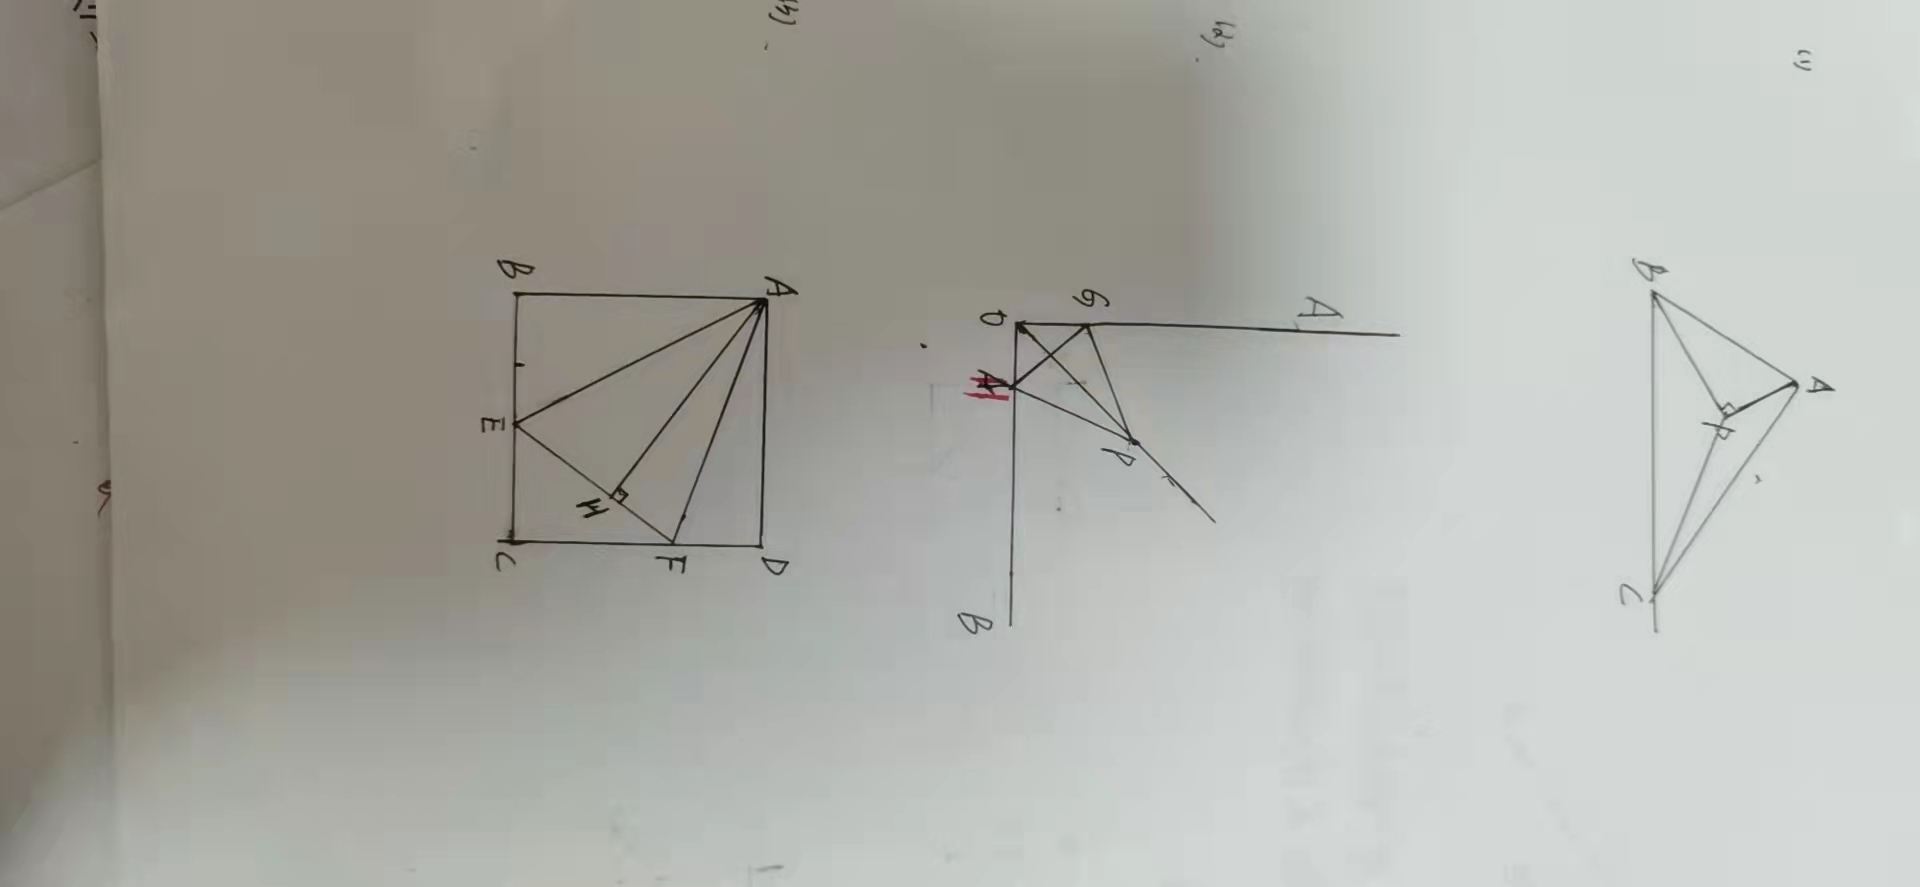 (1)
A
P
B
C
A
(2).
G
P
O
H
B
(3).
A
D
F
H
B
E
C